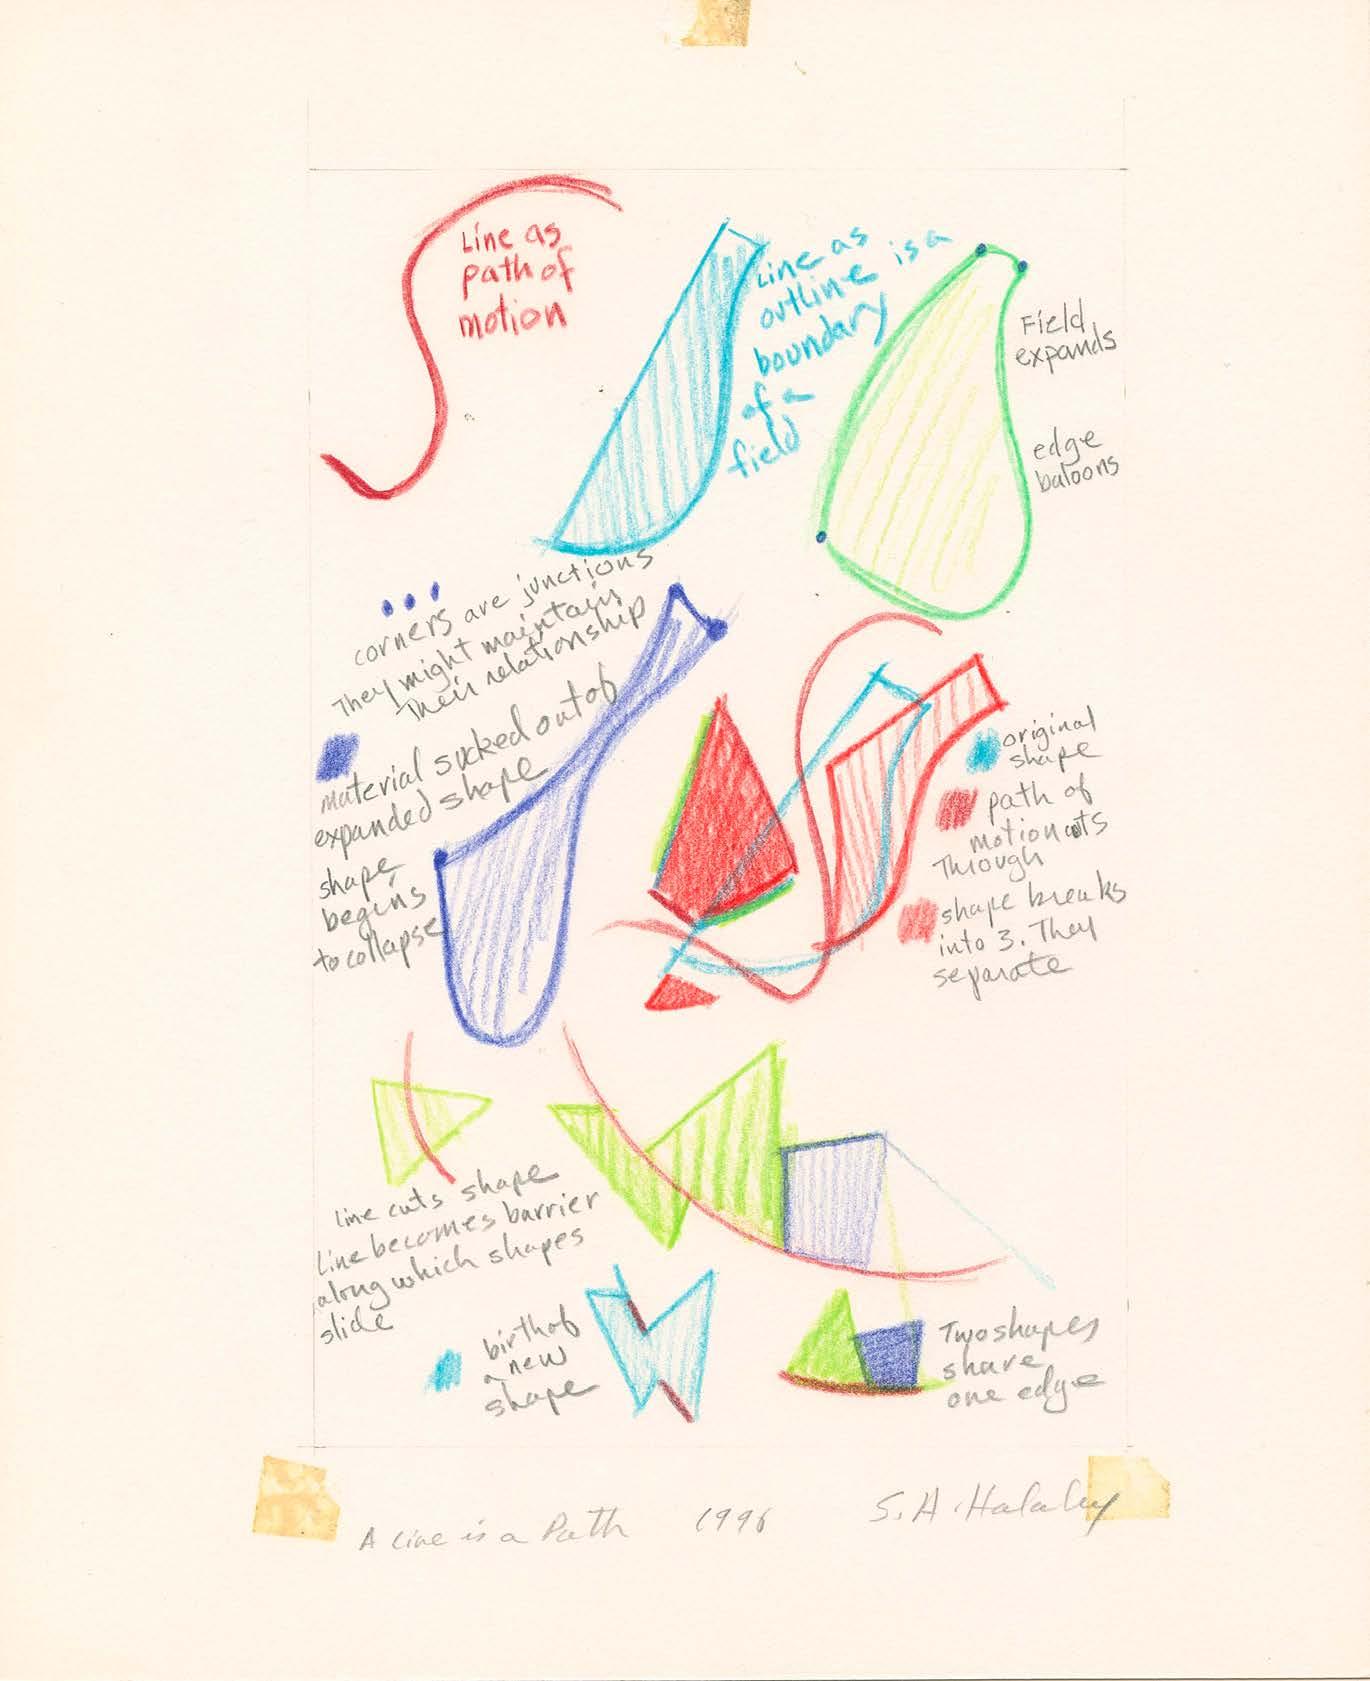 Line as
path of
motion
Line as
outline is a
boundary
of a
field
Field
expands
edge
baloons
corners are junctions
They might maintain
Their relationship
material sucked out of
expanded shape
shape
begins
to collapse
original
shape
path of
motion cuts
Through
shape breaks
into 3. They
separate
line cuts shape
Line becomes barrier
along which shapes
slide
birth of
a new
shape
Two shapes
share
one edge
A Line is a Path 1996 S. A. Halaby